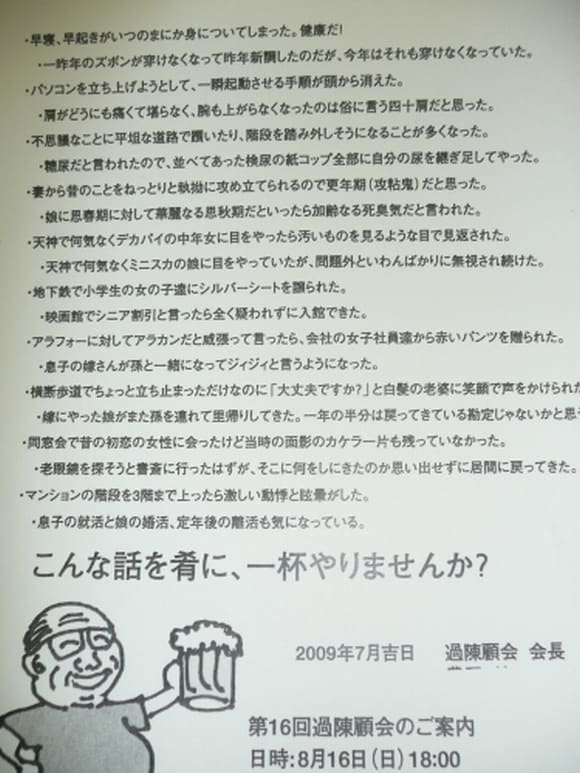 ・早寝、早起きがいつのまにか身についてしまった。健康だ!
・一昨年のズボンが穿けなくなって昨年新調したのだが、今年はそれも穿けなくなっていた。
・パソコンを立ち上げようとして、一瞬起動させる手順が頭から消えた。
・肩がどうにも痛くて堪らなく、腕も上がらなくなったのは俗に言う四十肩だと思った。
・不思議なことに平坦な道路で躓いたり、階段を踏み外しそうになることが多くなった。
・糖尿だと言われたので、並べてあった検尿の紙コップ全部に自分の尿を継ぎ足してやった。
・妻から昔のことをねっとりと執拗に攻め立てられるので更年期(攻粘鬼)だと思った。
・娘に思春期に対して華麗なる思秋期だといったら加齢なる死臭気だと言われた。
・天神で何気なくデカパイの中年女に目をやったら汚いものを見るような目で見返された。
・天神で何気なくミニスカの娘に目をやっていたが、問題外といわんばかりに無視され続けた。
・地下鉄で小学生の女の子達にシルバーシートを譲られた。
・映画館でシニア割引と言ったら全く疑われずに入館できた。
・アラフォーに対してアラカンだと威張って言ったら、会社の女子社員達から赤いパンツを贈られた。
・息子の嫁さんが孫と一緒になってジィジィと言うようになった。
・横断歩道でちょっと立ち止まっただけなのに「大丈夫ですか?」と白髪の老婆に笑顔で声をかけられた
・嫁にやった娘がまた孫を連れて里帰りしてきた。一年の半分は戻ってきている勘定じゃないかと思
・同窓会で昔の初恋の女性に会ったけど当時の面影のカケラ一片も残っていなかった。
・老眼鏡を探そうと書斎に行ったはずが、そこに何をしにきたのか思い出せずに居間に戻ってきた。
・マンションの階段を3階まで上ったら激しい動悸と眩暈がした。
・息子の就活と娘の婚活、定年後の離活も気になっている。
こんな話を肴に、一杯やりませんか?
2009年7月吉日 過陳顧会 会長
第16回過陳顧会のご案内
日時:8月16日(日)18:00